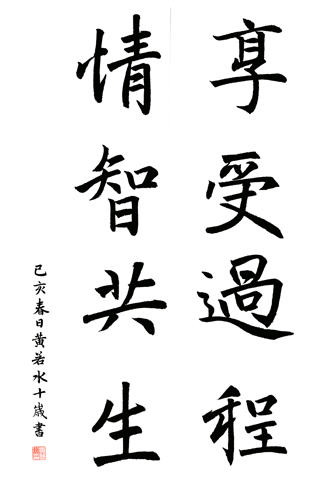 享受過程
情智共生
己亥春日黄若水十歲書